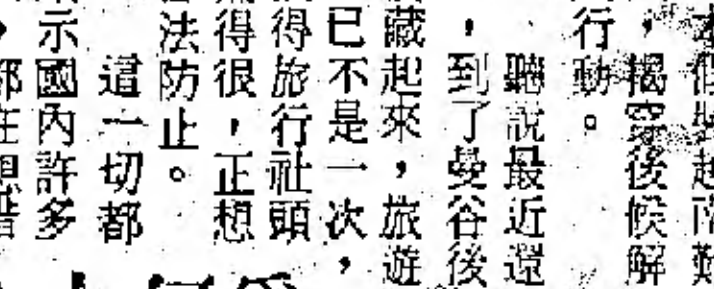 假裝越南難
，揭穿後候解
行動。
聽說最近還
，到了曼谷後
藏起來，旅遊
已不是一次，
得旅行社頭
得很，正想
法防止。
這一切都
示國內許多
都在想